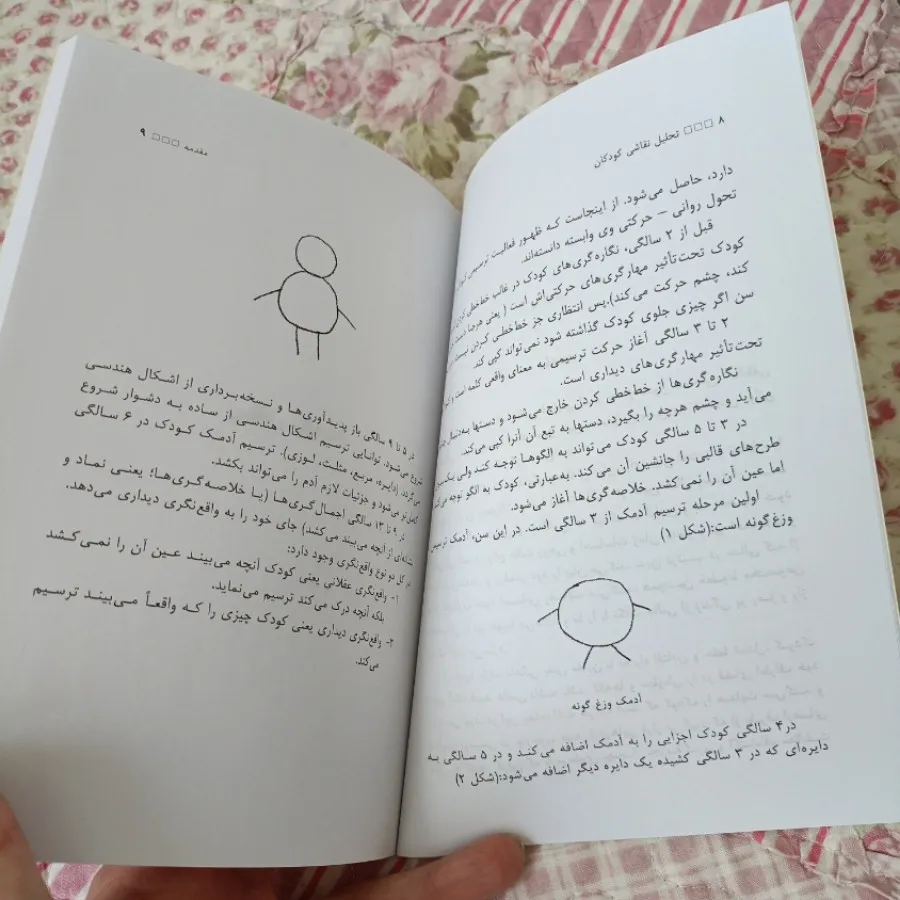 ۸ □□□ تحلیل نقاشی کودکان
دارد، حاصل می‌شود. از اینجاست که ظهور فعالیت ترسیمی
تحول روانی – حرکتی وی وابسته دانسته‌اند.
قبل از ۲ سالگی، نگاره‌گری‌های کودک در غالب خط‌خطی کردن
کودک تحت‌تأثیر مهارگری‌های حرکتی‌اش است ( یعنی هرجا دست
کند، چشم حرکت می‌کند).پس انتظاری جز خط‌خطی کردن نیست.
سن اگر چیزی جلوی کودک گذاشته شود نمی‌تواند کپی کند.
۲ تا ۳ سالگی آغاز حرکت ترسیمی به معنای واقعی کلمه است
تحت‌تأثیر مهارگری‌های دیداری است.
نگاره‌گری‌ها از خط‌خطی کردن خارج می‌شود و دستها به‌دنبال
می‌آید و چشم هرچه را بگیرد، دستها به تبع آن آنرا کپی می‌کند.
در ۳ تا ۵ سالگی کودک می‌تواند به الگوها توجه کند ولی
طرح‌های قالبی را جانشین آن می‌کند. به‌عبارتی، کودک به الگو توجه
اما عین آن را نمی‌کشد. خلاصه‌گری‌ها آغاز می‌شود.
اولین مرحله ترسیم آدمک از ۳ سالگی است. در این سن، آدمک ترسیمی
وزغ‌گونه است:(شکل ۱)
آدمک وزغ گونه
در۴ سالگی کودک اجزایی را به آدمک اضافه می‌کند و در ۵ سالگی به
دایره‌ای که در ۳ سالگی کشیده یک دایره دیگر اضافه می‌شود:(شکل ۲)
مقدمه □□□ ۹
در ۵ تا ۹ سالگی باز پدیدآوری‌ها و نسخه‌برداری از اشکال هندسی
شروع می‌شود. توانایی ترسیم اشکال هندسی از ساده به دشوار شروع
می‌گردد. (دایره، مربع، مثلث، لوزی). ترسیم آدمک کودک در ۶ سالگی
کامل‌تر می‌شود و جزئیات لازم آدم را می‌تواند بکشد.
در ۹ تا ۱۳ سالگی اجمال‌گری‌ها (یا خلاصه‌گری‌ها؛ یعنی نماد و
نشانه‌ای از آنچه می‌بیند می‌کشد) جای خود را به واقع‌نگری دیداری می‌دهد.
در کل دو نوع واقع‌نگری وجود دارد:
۱- واقع‌نگری عقلانی یعنی کودک آنچه می‌بیند عین آن را نمی‌کشد
بلکه آنچه درک می‌کند ترسیم می‌نماید.
۲- واقع‌نگری دیداری یعنی کودک چیزی را که واقعاً می‌بیند ترسیم
می‌کند.